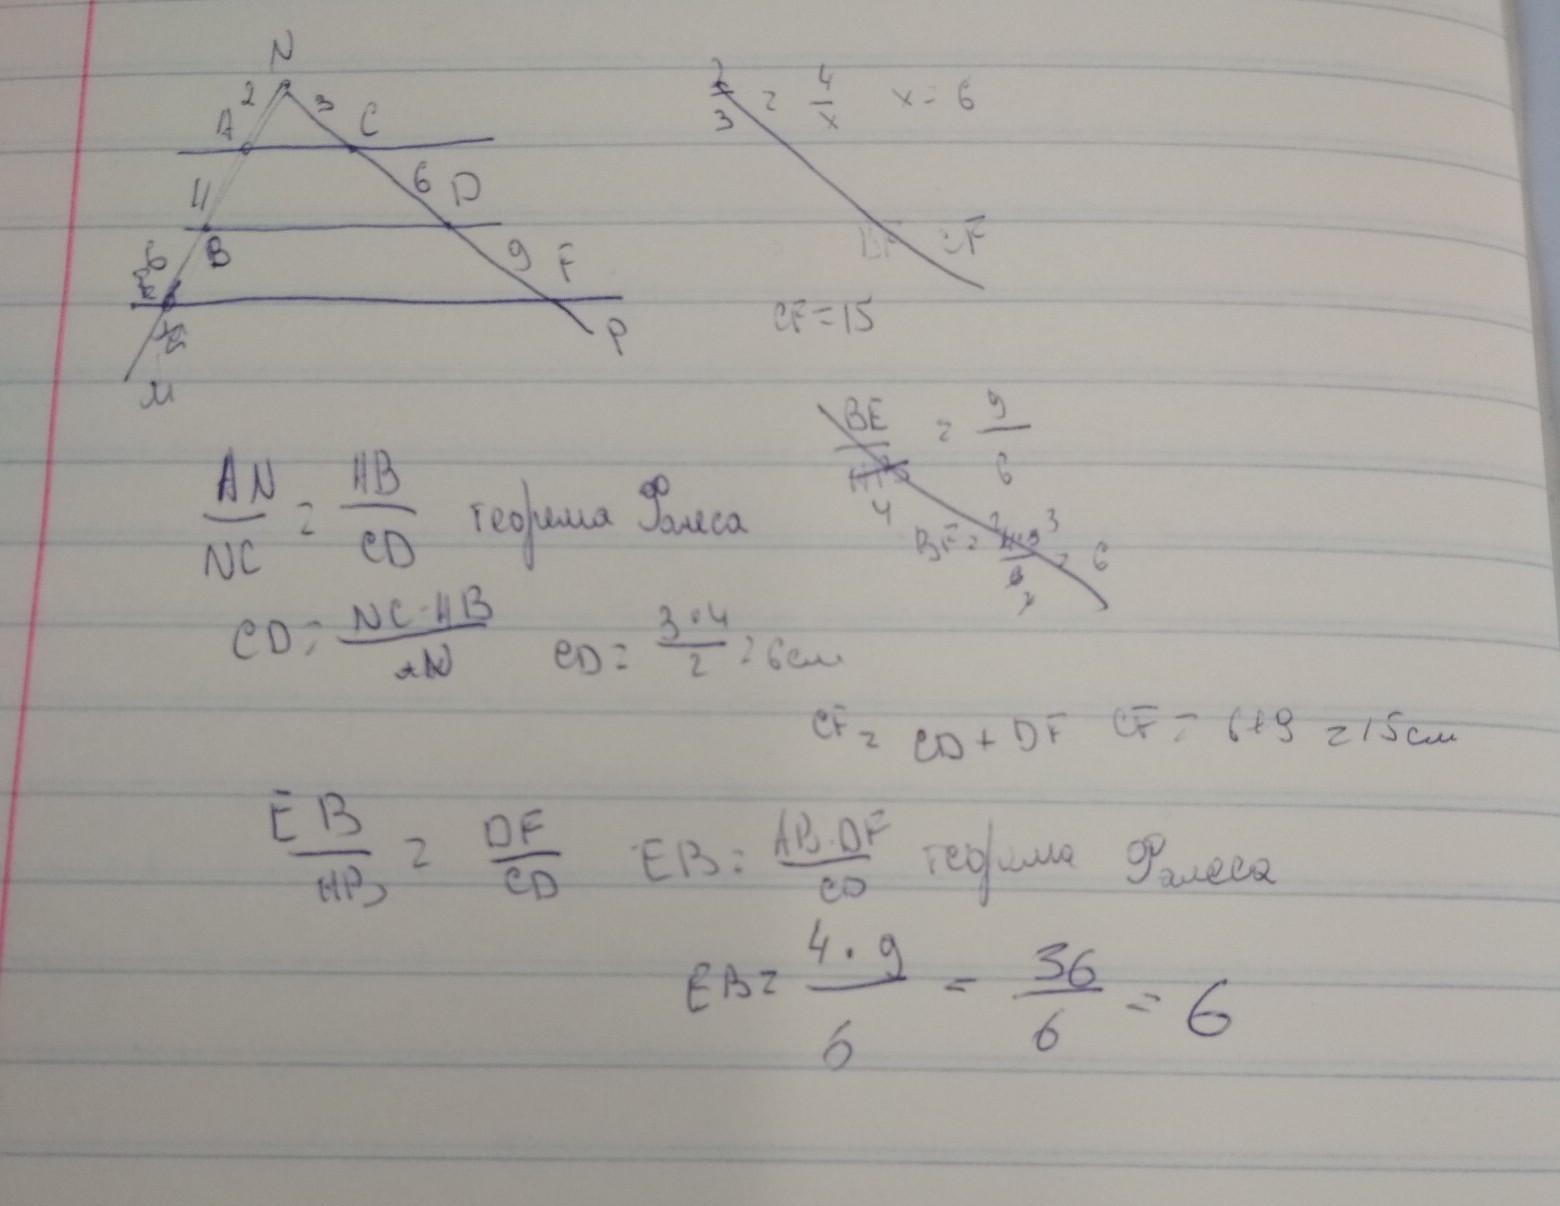 N
2 3
A C
4 6 D
6 B 9 F
E P
M
2/3 = 4/x x = 6
CF
CF = 15
BE/AB = 9/6
4
BE = 4·9/6 = 6
AN/NC = AB/CD теорема Фалеса
CD = NC·AB/AN CD = 3·4/2 = 6см
CF = CD + DF CF = 6+9 = 15см
EB/AB = DF/CD EB = AB·DF/CD теорема Фалеса
EB = 4·9/6 = 36/6 = 6